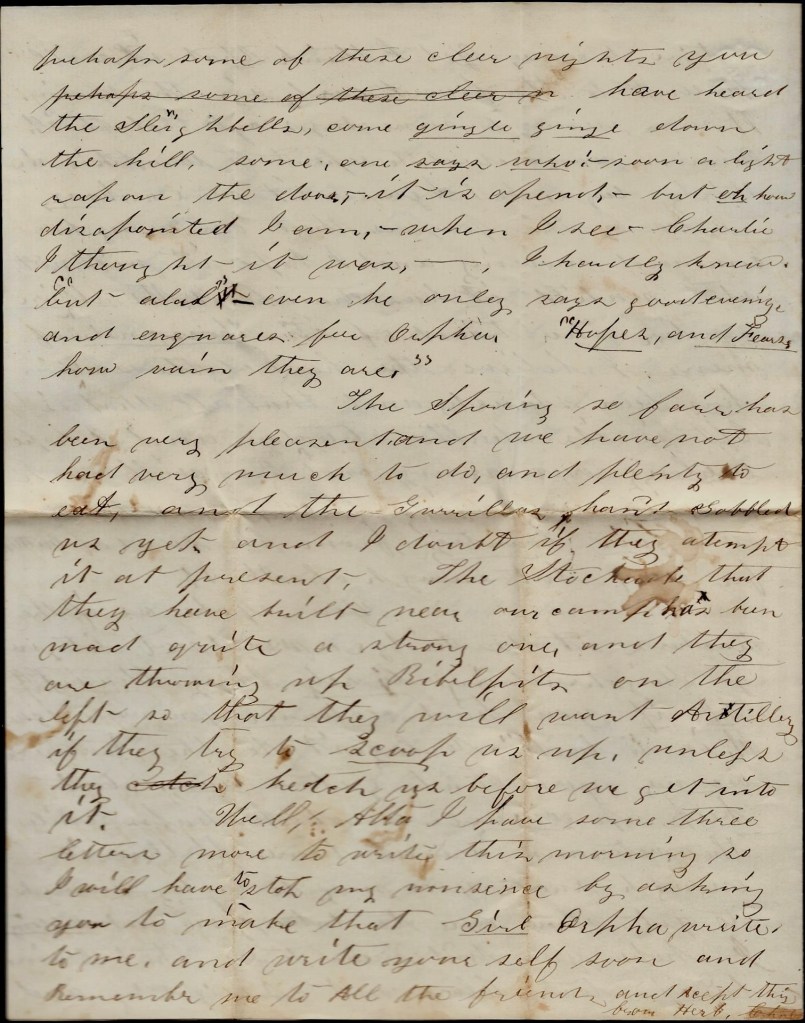 perhaps some of these cleer nights you
pehaps some of these cleer n have heard
the Sleighbells, come gingle ginge down
the hill, some, one says who:- soon a light
rap on the door, it is opend,- but oh how
disapointed I am,- when I see- Charlie
I thought it was, —, I hardly knew.
"but alas" even he only says goodevening
and enquares for Orpha. "Hopes, and Fears,
how vain they are."
The Spring so fair has
been very pleasent and we have not
had very much to do, and plenty to
eat, and the Gurrillas han't Gobbled
us yet. and I doubt if they atempt
it at present. The Stockade that
they have built near our camp has been
mad quite a strong one, and they
are throwing up Ribelpits on the
left so that they will want Artillery
if they try to scoop us up, unless
they cetch ketch us before we get into
it. Well, Alta I have some three
letters more to write this morning so
I will have to stop my nonsence by asking
you to make that Girl Orpha write
to me. and write your self soon and
Remember me to All the friends and Acept this
from Herb,